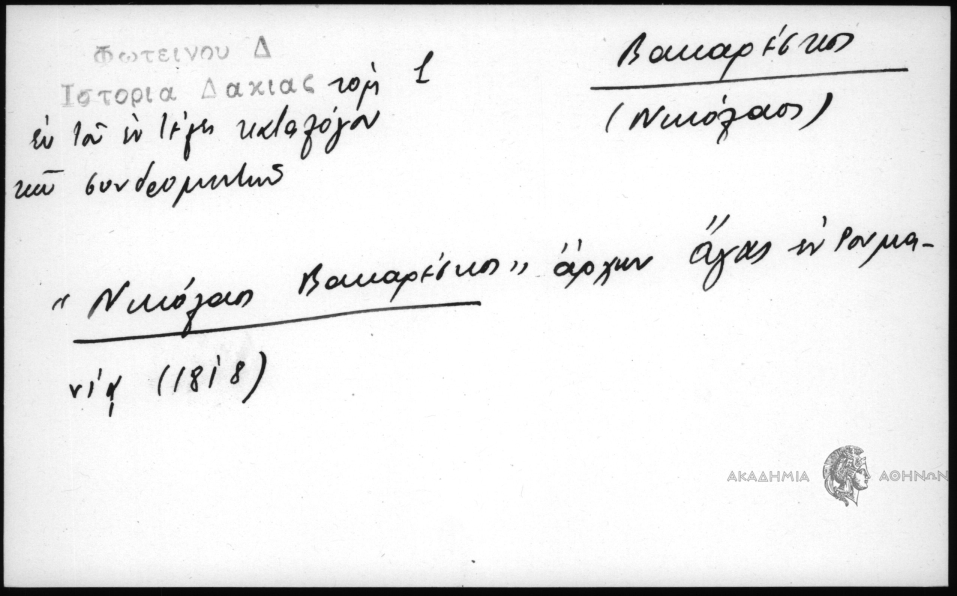 Φωτεινου Δ
Ιστορια Δακιας τομ 1
ἐν τῷ ἐν τέλει καταλόγου
τῶν συνδρομητῶν
Βακαρέσκος
(Νικόλαος)
"Νικόλαος Βακαρέσκος" ἄρχων Ἀγᾶς ἐν Ρουμα-
νίᾳ (1818)
ΑΚΑΔΗΜΙΑ ΑΘΗΝΩΝ